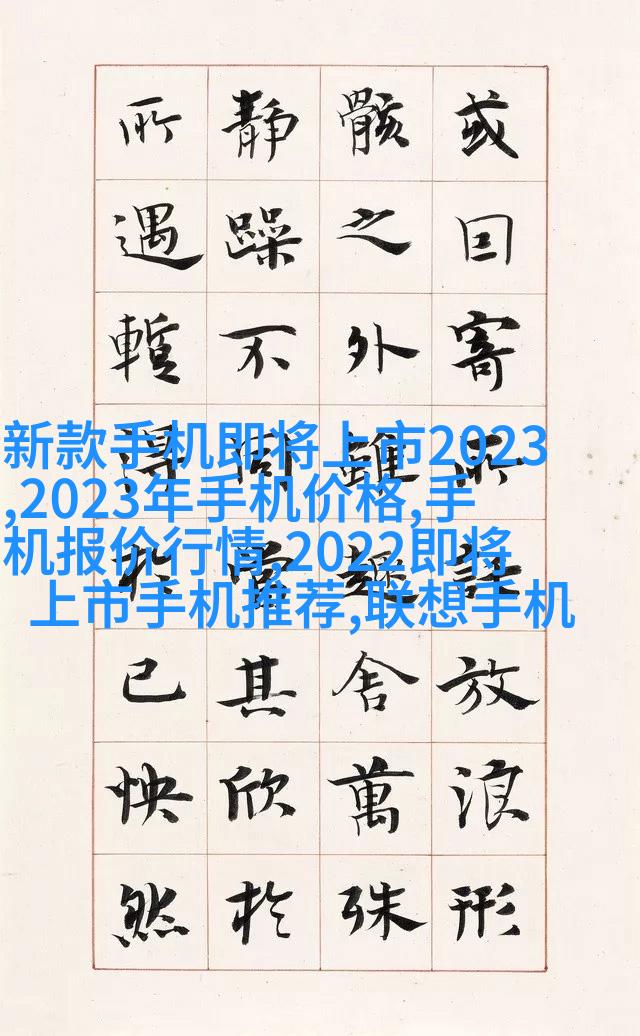 或因寄所託放浪形
骸之外雖趣舍萬殊
靜躁不同當其欣於
所遇暫得於己怏然
新款手机即将上市2023
,2023年手机价格,手
机报价行情,2022即将
上市手机推荐,联想手机